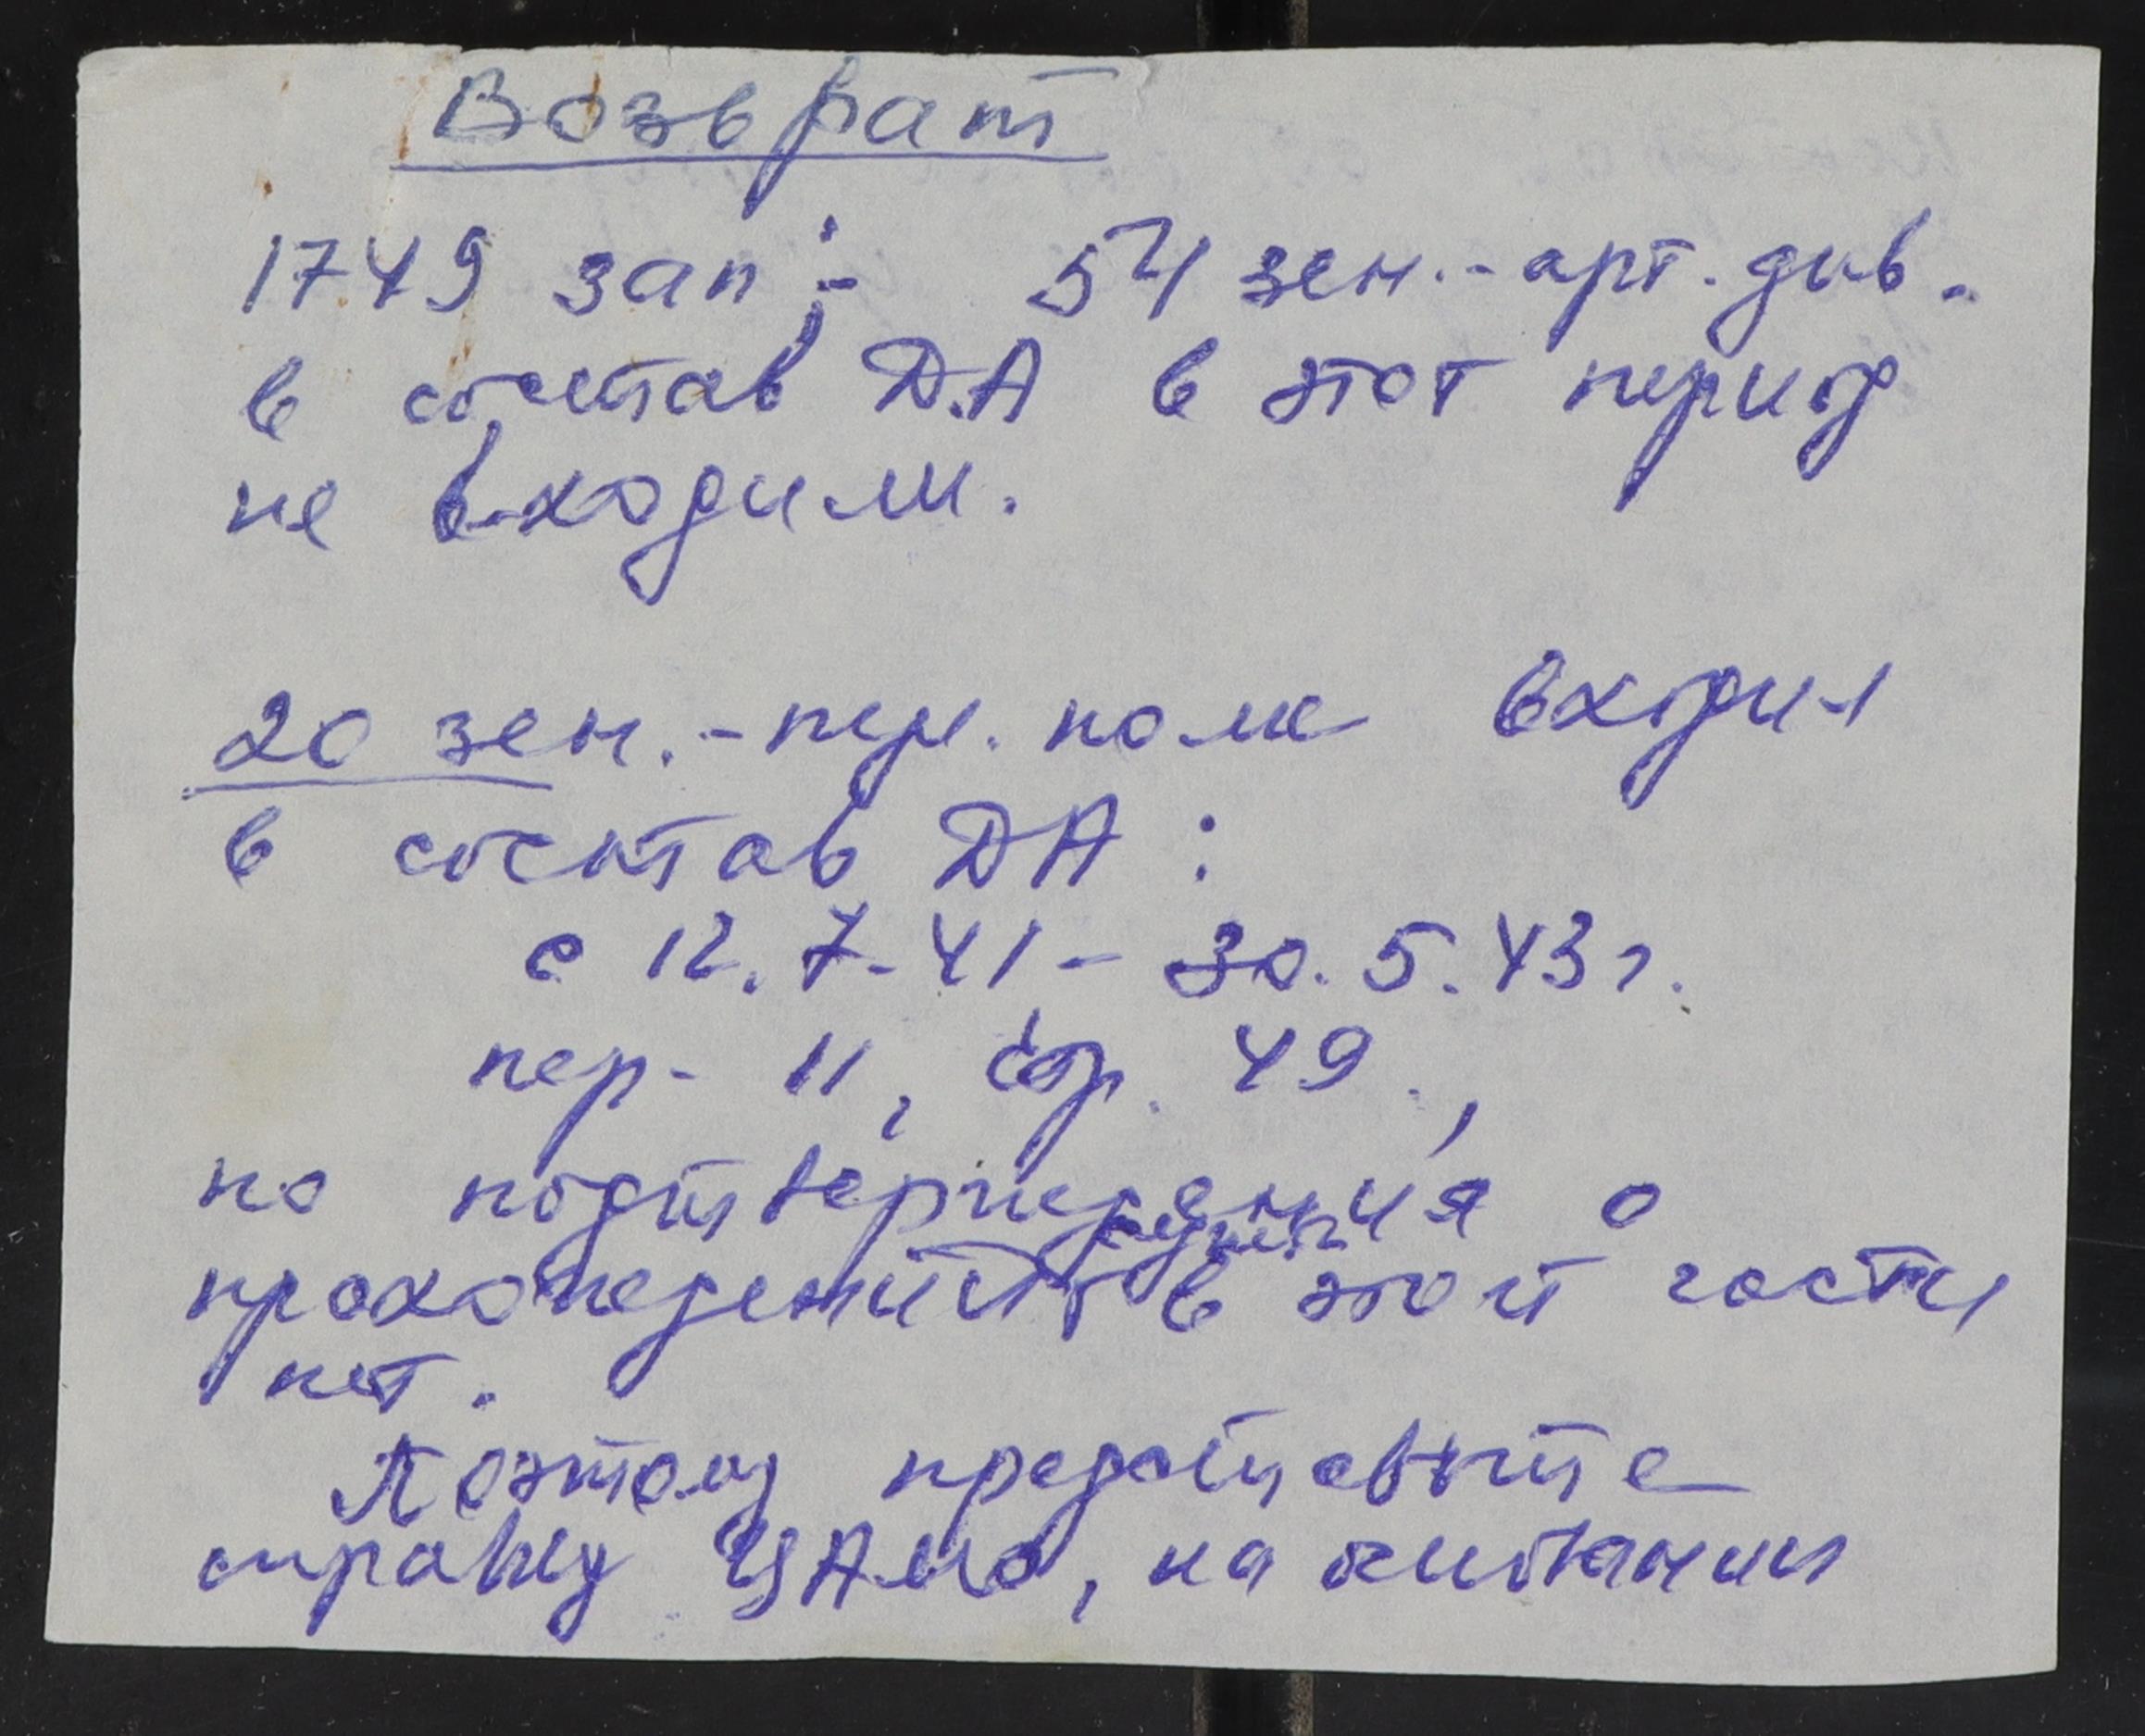 Возврат
1749 зап; - 54 зен.-арт. див.
в состав ДА в этот период
не входили.
20 зен.-пул. полк входил
в состав ДА:
с 12.7.41 - 30.5.43 г.
пер - 11, стр. 49.,
но подтверждения о
прохождении службы в этой части
нет.
Поэтому предоставьте
справку ЦАМО, на основании